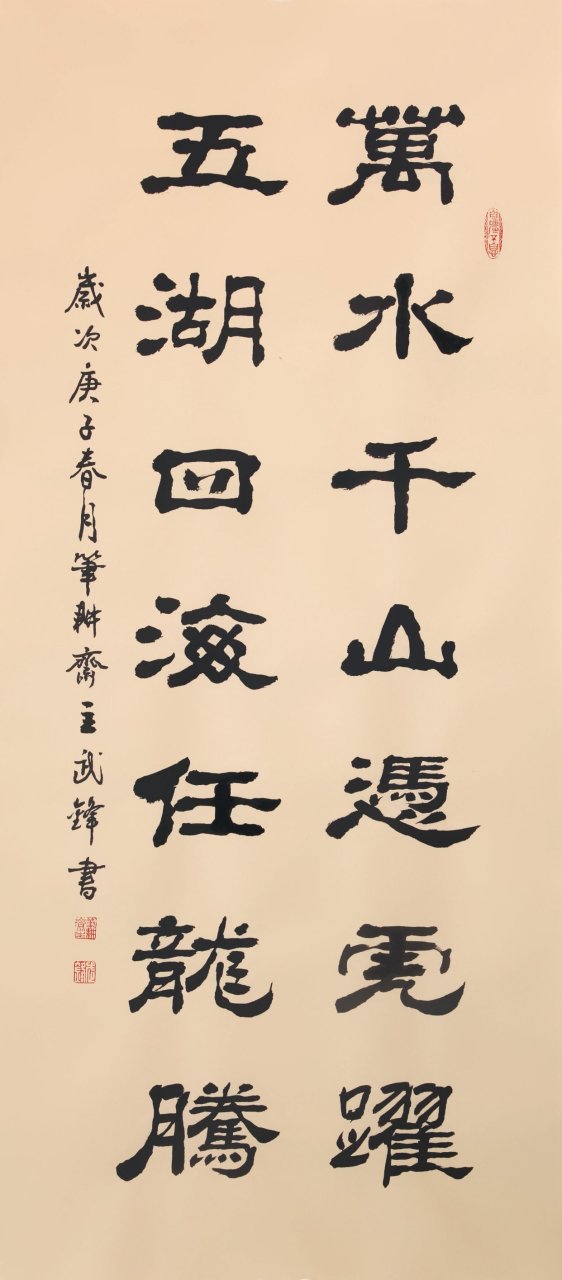 萬水千山憑虎躍
五湖四海任龍騰
歲次庚子春月筆耕齋主武鋒書